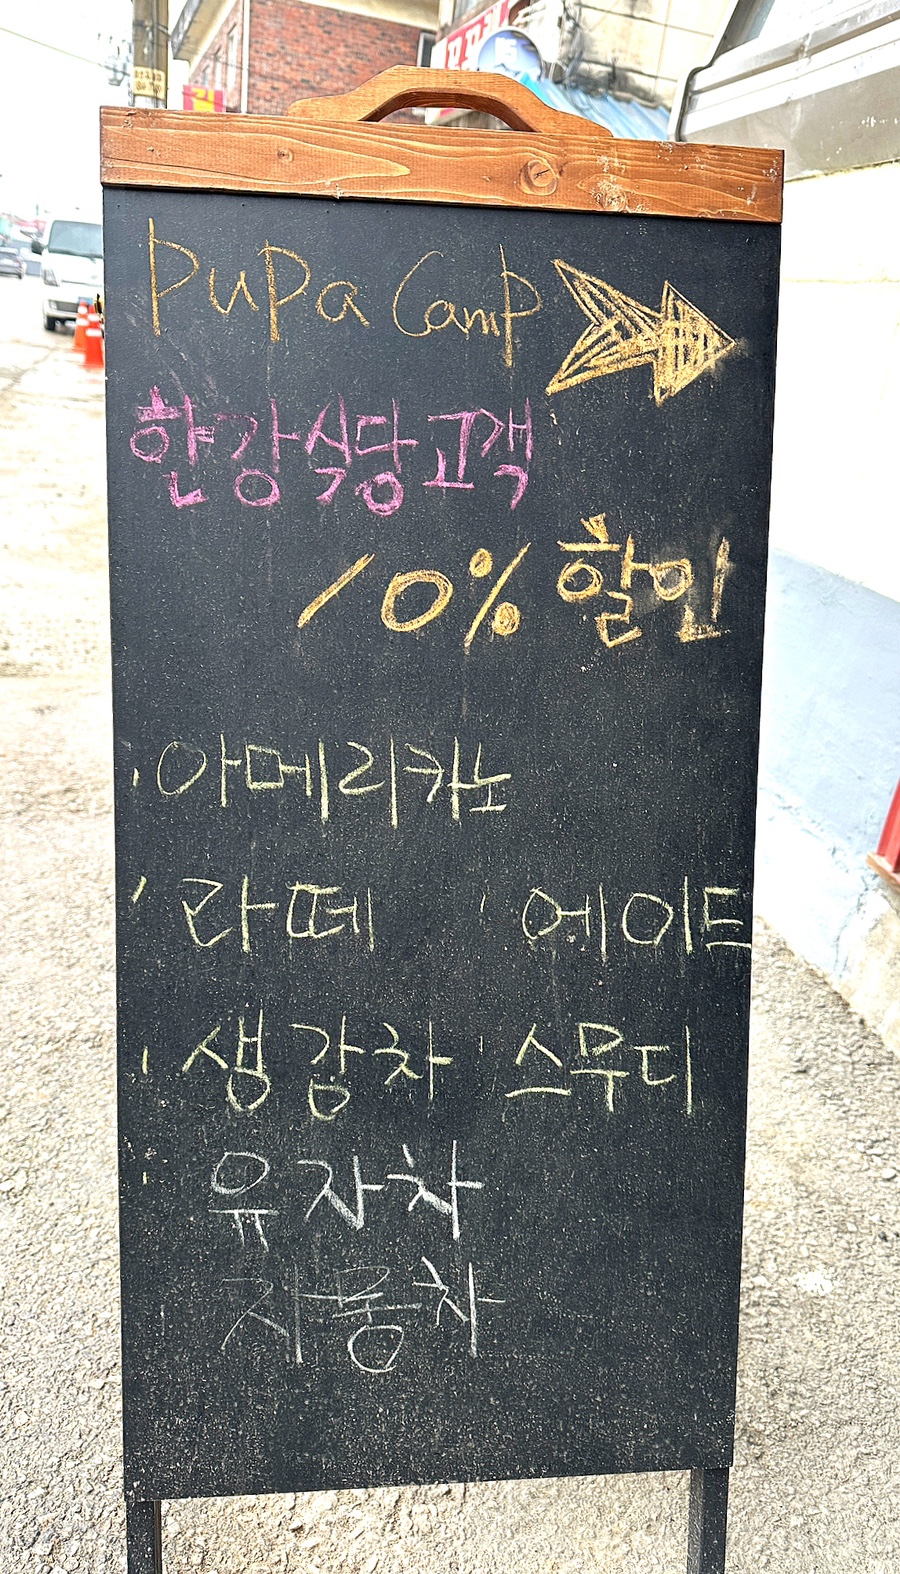 PuPa Camp
한강식당 고객
10% 할인
· 아메리카노
· 라떼 · 에이드
· 생강차 · 스무디
· 유자차
자몽차